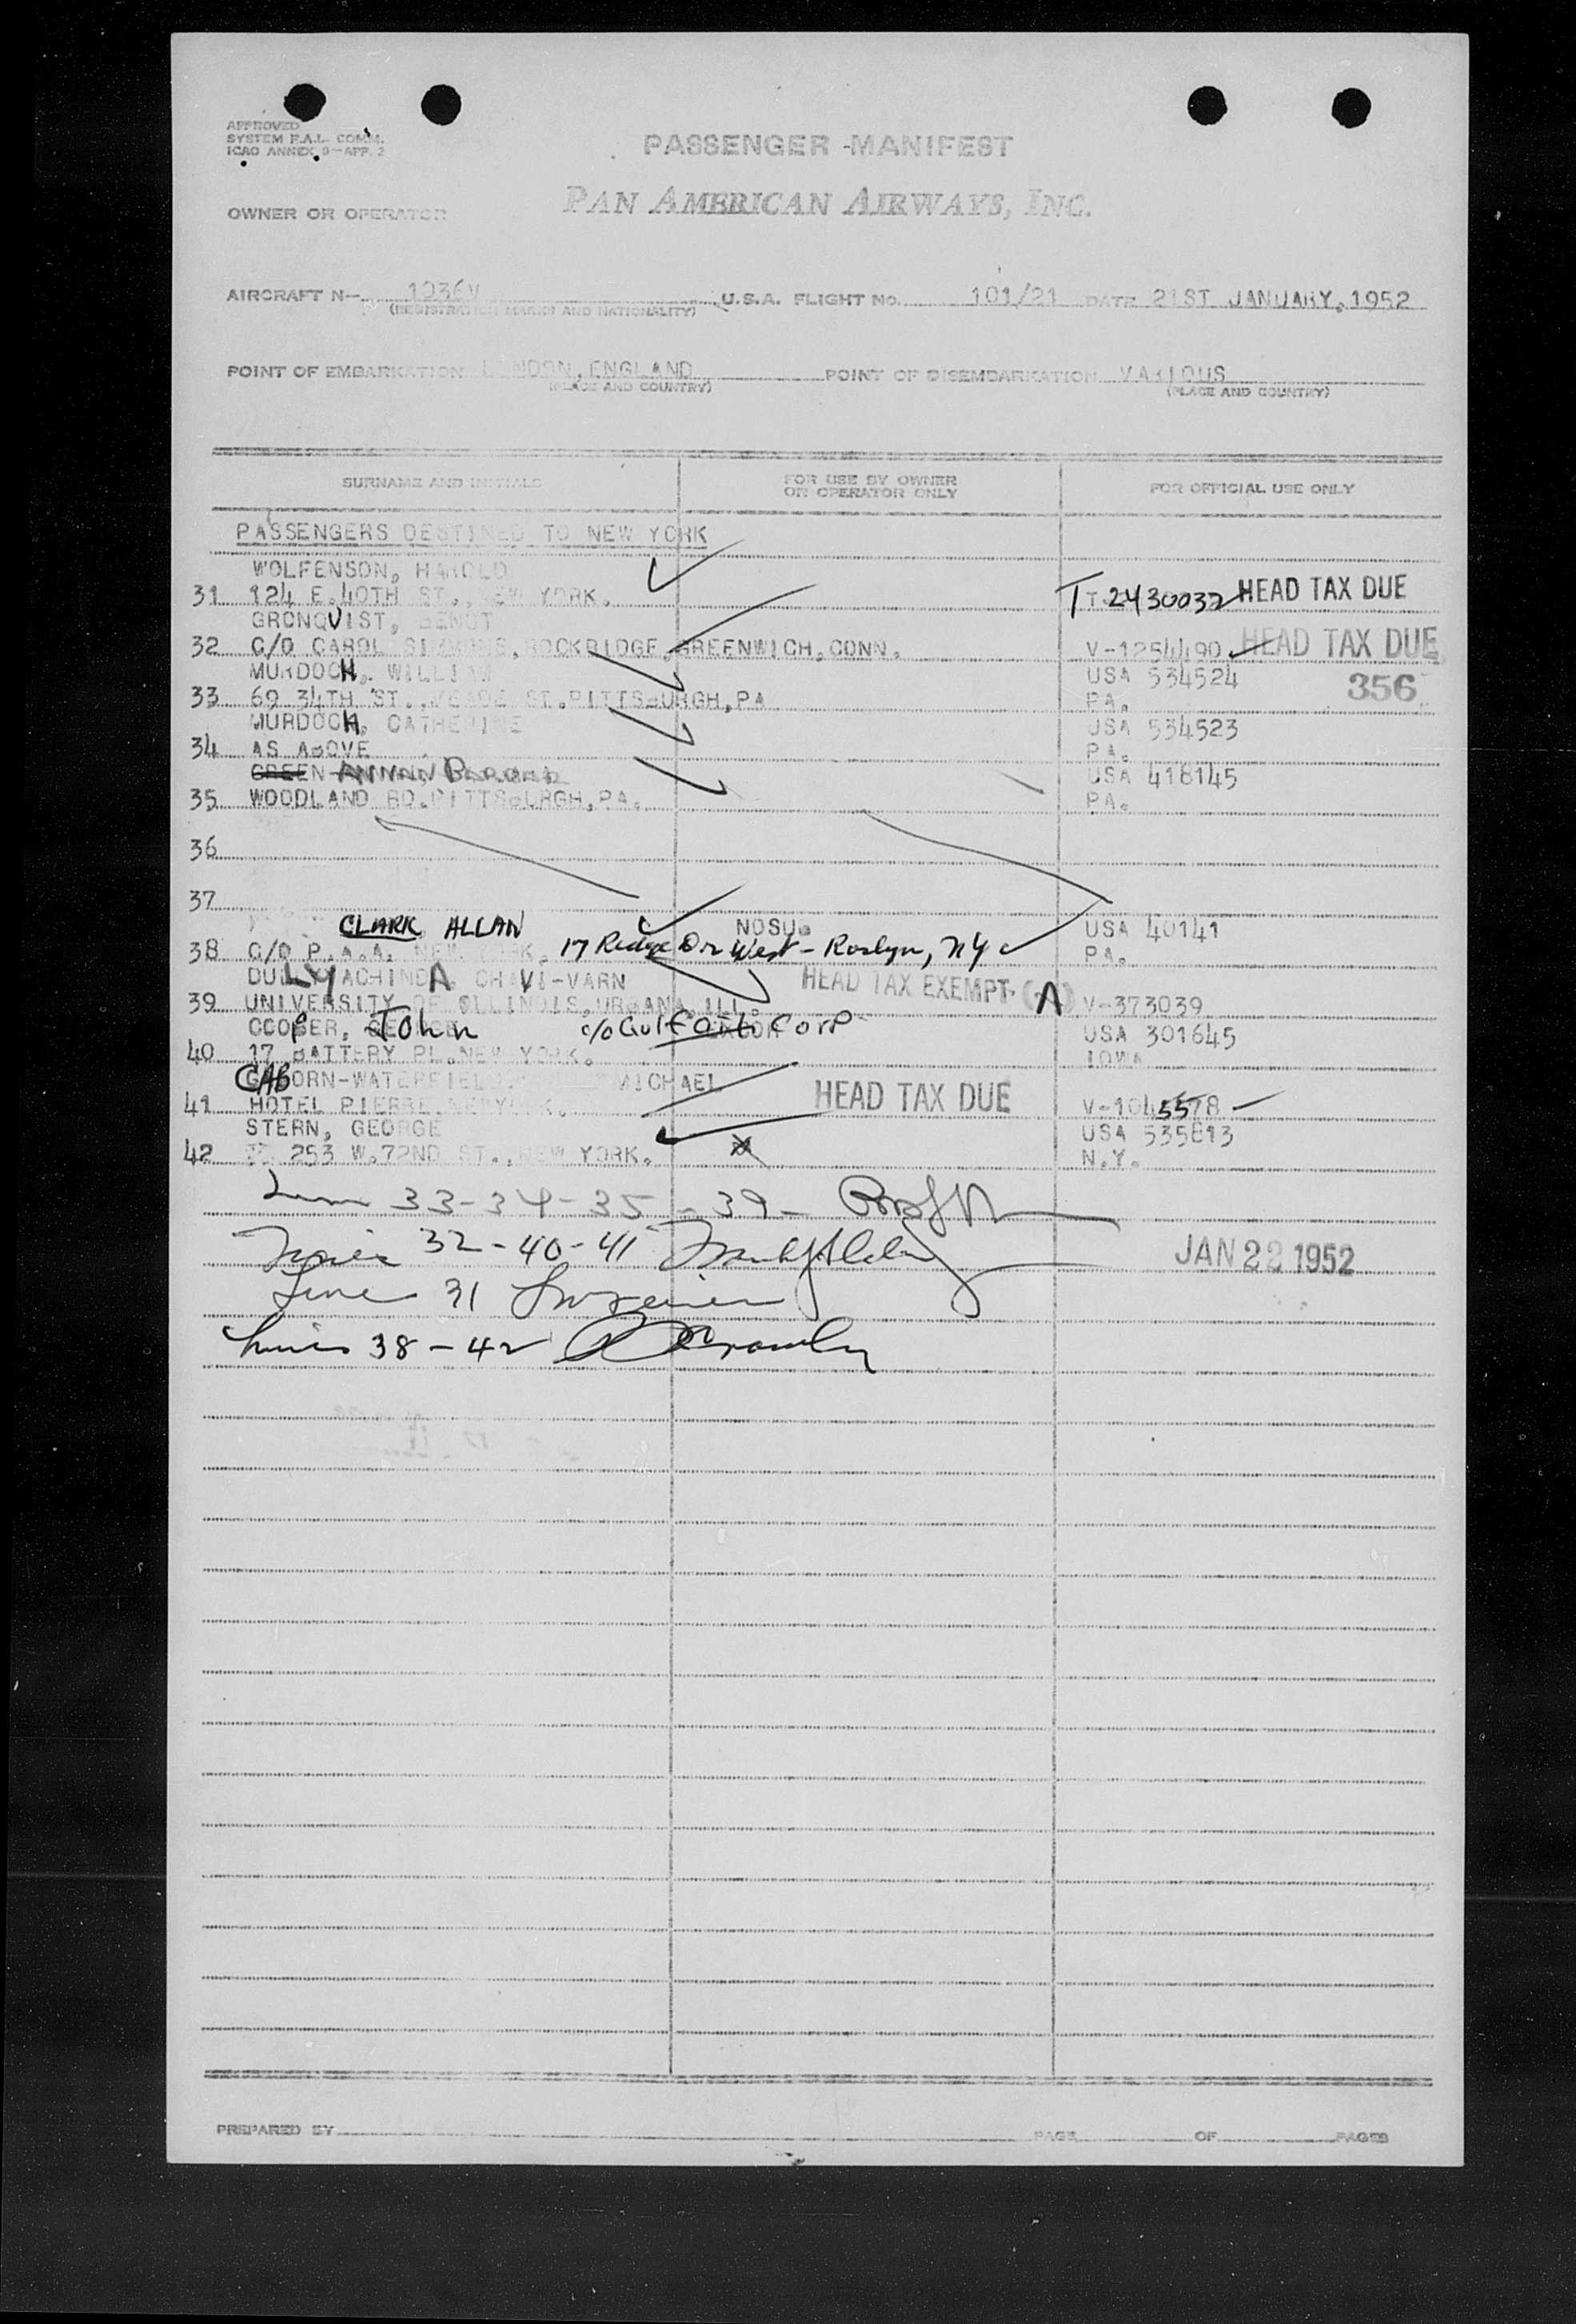 APPROVED
SYSTEM F.A.L. COMM.
ICAO ANNEX 9-APP. 2
PASSENGER MANIFEST
OWNER OR OPERATOR PAN AMERICAN AIRWAYS, INC.
AIRCRAFT N- 1036V U.S.A. FLIGHT NO. 101/21 DATE 21ST JANUARY, 1952
(REGISTRATION MARKS AND NATIONALITY)
POINT OF EMBARKATION LONDON, ENGLAND POINT OF DISEMBARKATION VARIOUS
(PLACE AND COUNTRY) (PLACE AND COUNTRY)
SURNAME AND INITIALS FOR USE BY OWNER OR OPERATOR ONLY FOR OFFICIAL USE ONLY
PASSENGERS DESTINED TO NEW YORK
WOLFENSON, HAROLD
31 124 E. 40TH ST., NEW YORK. T 2430032 HEAD TAX DUE
GRONQVIST, BENGT
32 C/O CAROL SIMMONS, ROCKRIDGE, GREENWICH, CONN. V-1254490 HEAD TAX DUE
MURDOCH, WILLIAM USA 534524 356
33 69 34TH ST., ST. PITTSBURGH, PA PA.
MURDOCH, CATHERINE USA 534523
34 AS ABOVE PA.
GREEN USA 418145
35 WOODLAND RD. PITTSBURGH, PA. PA.
36
37
CLARK ALLAN NOSUB USA 40141
38 C/O P.A.A. NEW YORK, 17 Ridge Dr West - Roslyn, NY PA.
DULYACHINDA CHAVI-VARN HEAD TAX EXEMPT (A)
39 UNIVERSITY OF ILLINOIS, URBANA, ILL. V-373039
COOPER, John c/o Gulf Oil Corp USA 301645
40 17 BATTERY PL. NEW YORK. IOWA
CABORN-WATERFIELD, MICHAEL HEAD TAX DUE
41 HOTEL PIERRE, NEW YORK. V-1045578
STERN, GEORGE USA 535813
42 253 W. 72ND ST., NEW YORK. N.Y.
33-34-35-39-
Lines 32-40-41
JAN 22 1952
Line 31
Lines 38-42
PREPARED BY PAGE OF PAGES